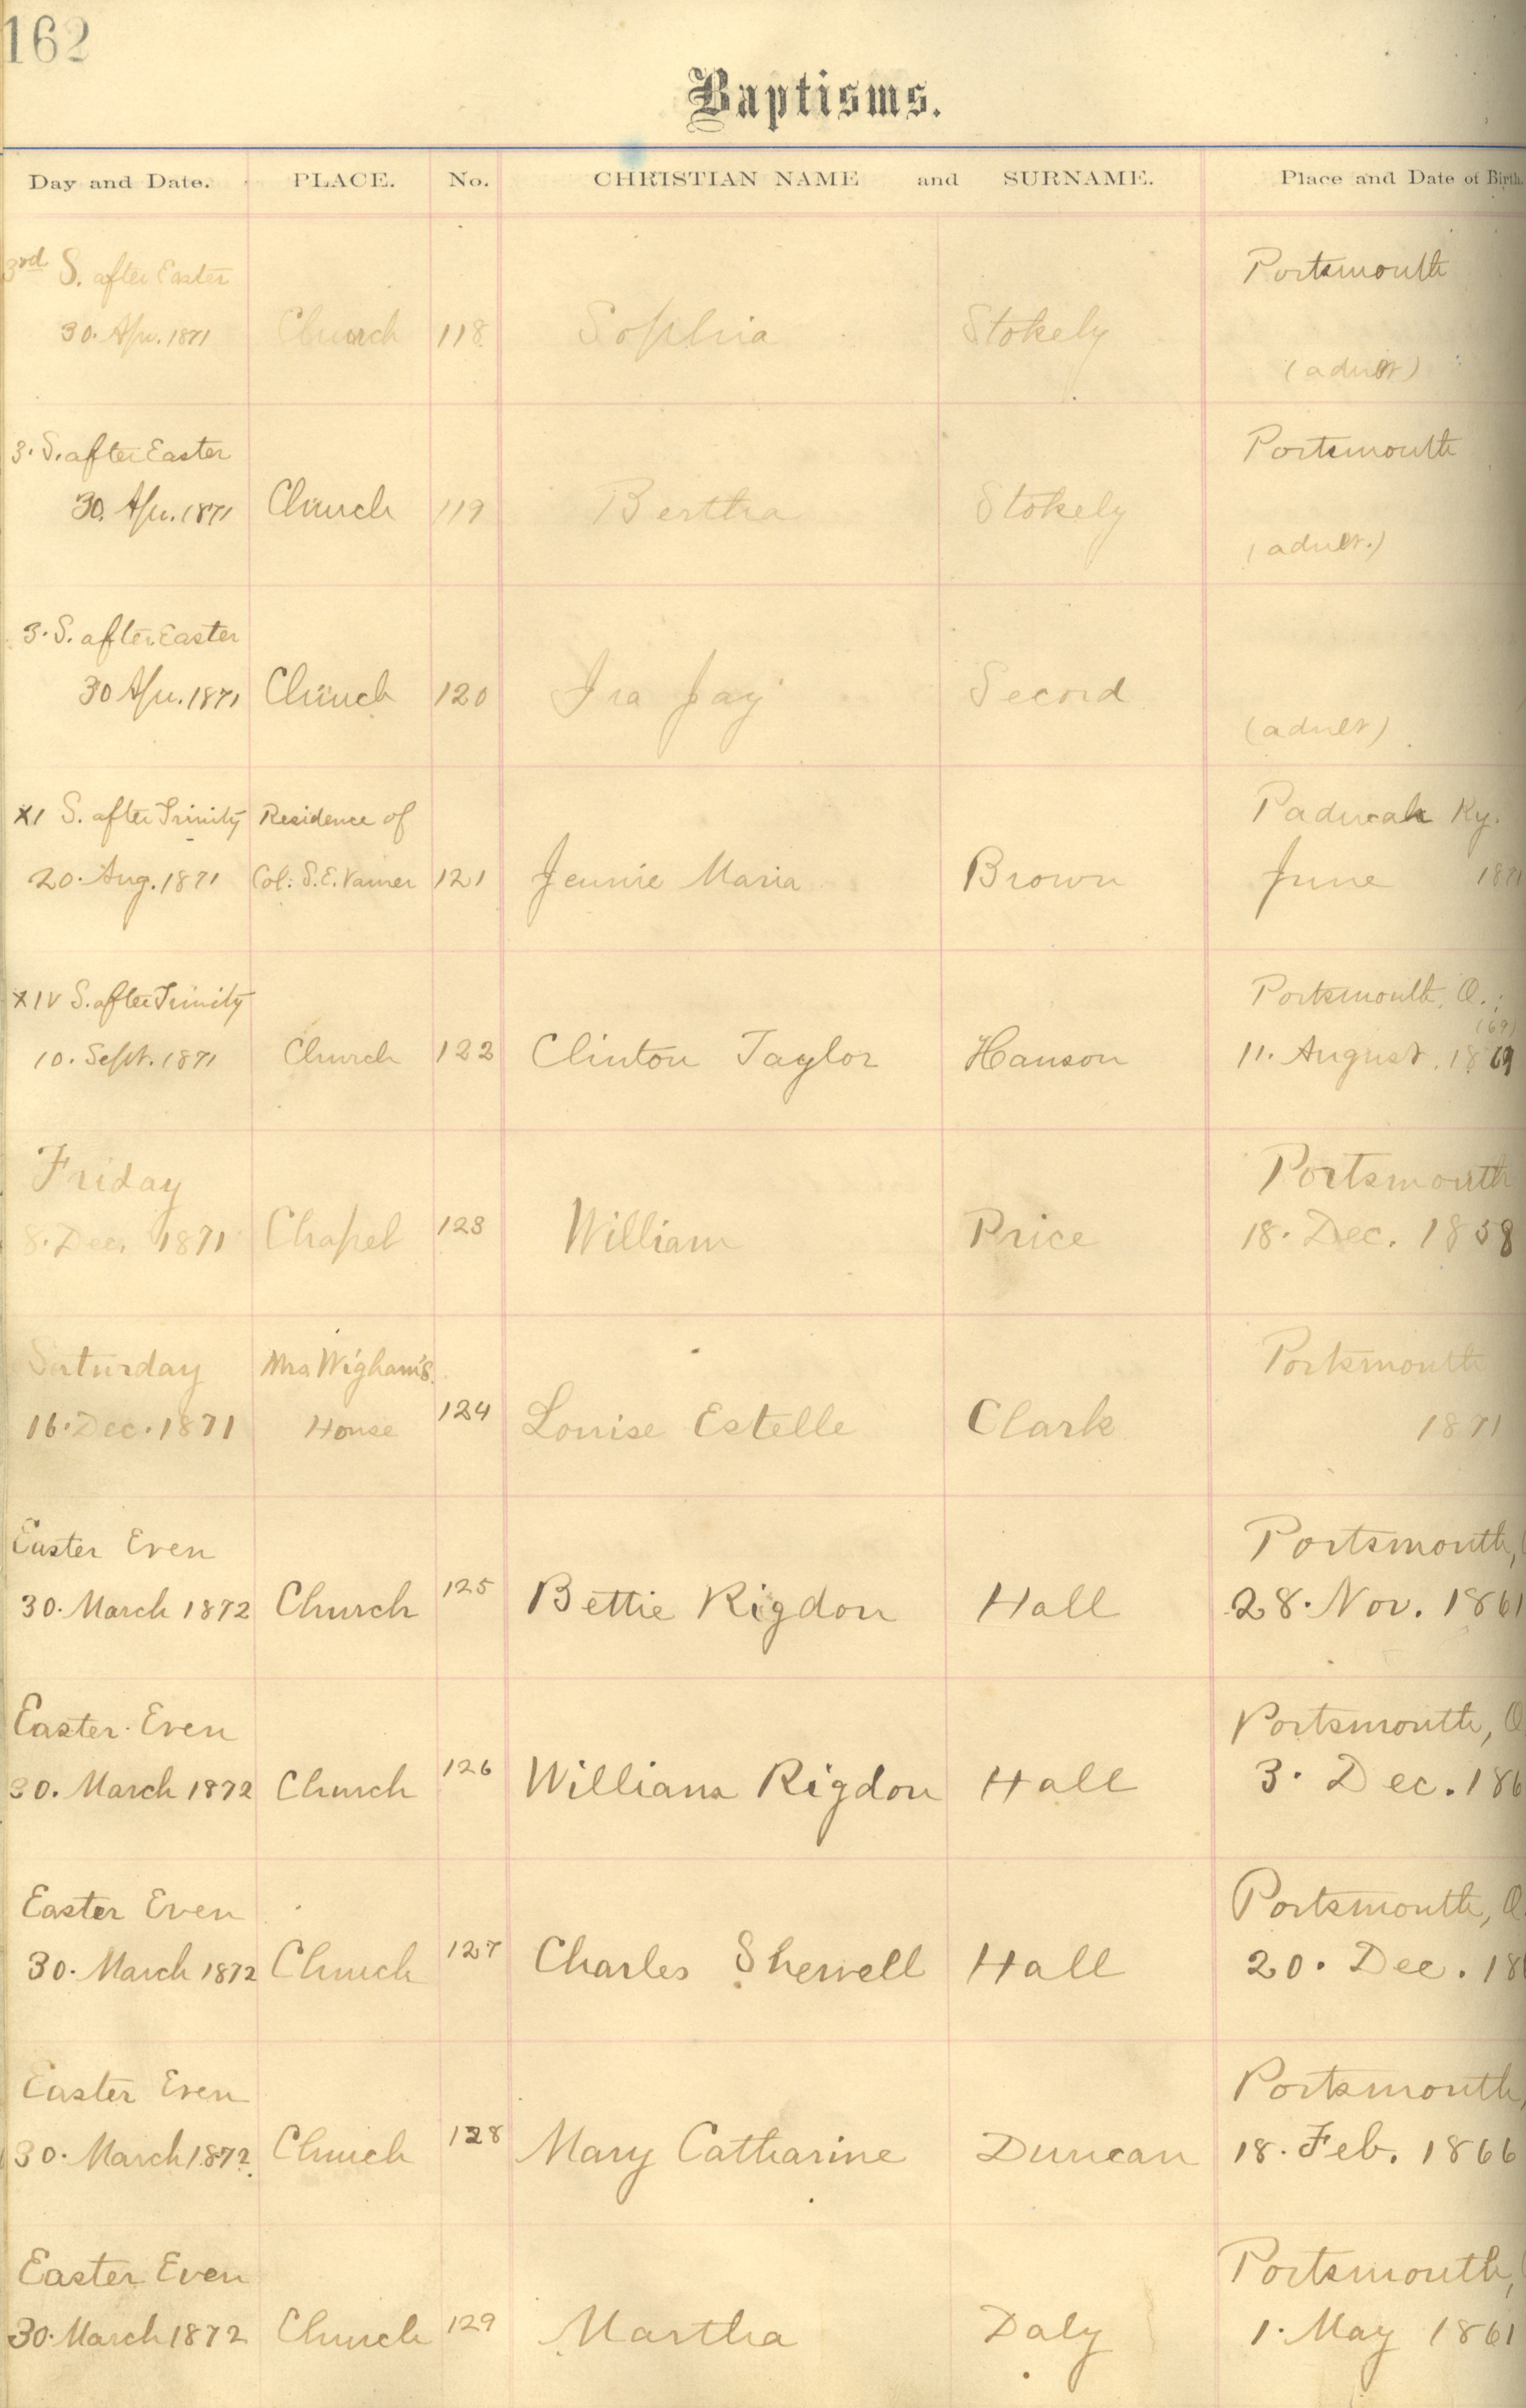 162
Baptisms.
Day and Date. PLACE. No. CHRISTIAN NAME and SURNAME. Place and Date of Birth.
3rd S. after Easter Portsmouth
30. Apr. 1871 Church 118 Sophia Stokely
(adult)
3. S. after Easter Portsmouth
30. Apr. 1871 Church 119 Bertha Stokely
(adult.)
3. S. after Easter
30 Apr. 1871 Church 120 Ira Jay Secord
(adult)
XI S. after Trinity Residence of Paducah Ky.
20. Aug. 1871 Col: S. E. Varner 121 Jennie Maria Brown June 1871
XIV S. after Trinity Portsmouth, O.;
(69)
10. Sept. 1871 Church 122 Clinton Taylor Hanson 11. August. 1869
Friday Portsmouth
8. Dec. 1871 Chapel 123 William Price 18. Dec. 1858
Saturday Mrs Wigham's Portsmouth
16. Dec. 1871 House 124 Louise Estelle Clark 1871
Easter Even Portsmouth,
30. March 1872 Church 125 Bettie Rigdon Hall 28. Nov. 1861
Easter Even Portsmouth, O
30. March 1872 Church 126 William Rigdon Hall 3. Dec. 186
Easter Even Portsmouth, O
30. March 1872 Church 127 Charles Hall 20. Dec. 18
Easter Even Portsmouth,
30. March 1872. Church 128 Mary Catharine Duncan 18. Feb. 1866
Easter Even Portsmouth,
30. March 1872 Church 129 Martha Daly 1. May 1861